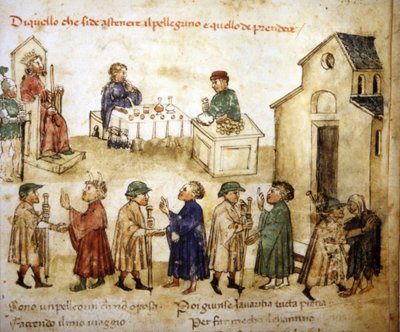 Di quello che si de astenere il pellegrino e quello de prendere
Sono un pellegrin ch no posa
Facendo il mio viaggio
Poi giunse lavaritia tucta piena
Per far me